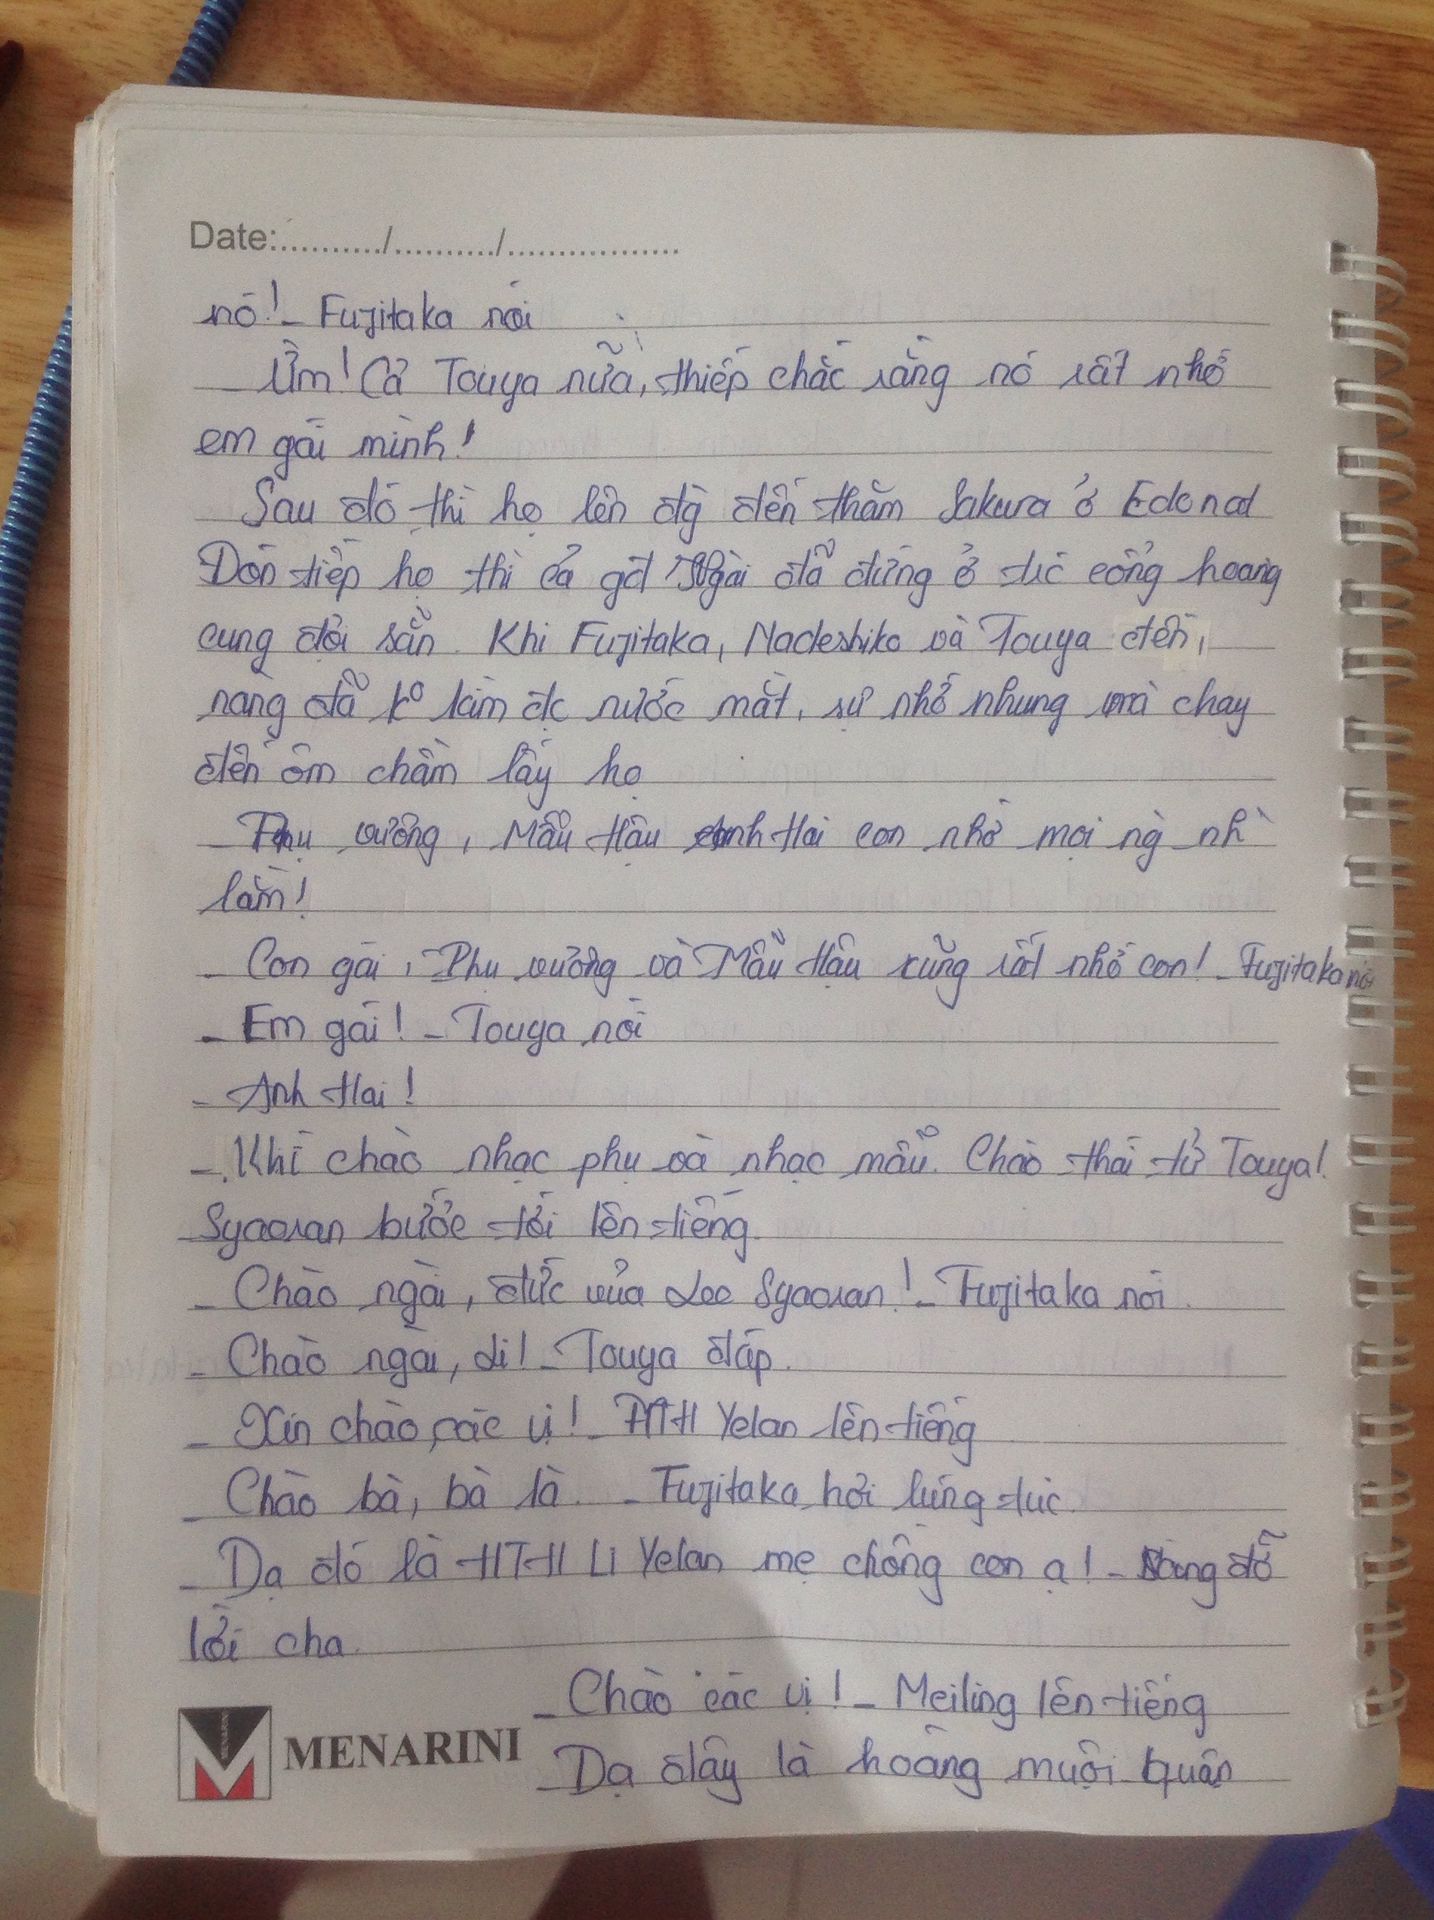 Date:........../........../.................
nó!_ Fujitaka nói
_ Ừm! Cả Touya nữa, thiếp chắc rằng nó rất nhớ
em gái mình!
Sau đó thì họ lên đg đến thăm Sakura ở Edonal
Đón tiếp họ thì cả gđ Ngài đã đứng ở trc cổng hoàng
cung đợi sẵn. Khi Fujitaka, Nadeshiko và Touya đến,
nàng đã ko kìm đc nước mắt, sự nhớ nhung mà chạy
đến ôm chầm lấy họ
_ Phụ vương, Mẫu Hậu Anh Hai con nhớ mọi ng nh`
lắm!
_ Con gái, Phụ vương và Mẫu Hậu cũng rất nhớ con! _ Fujitaka nói
_ Em gái! _ Touya nói
_ Anh Hai!
_ Khi chào nhạc phụ và nhạc mẫu. Chào thái tử Touya!
Syaoran bước tới lên tiếng
_ Chào ngài, đức vua Lee Syaoran! _ Fujitaka nói.
_ Chào ngài, Li! _ Touya đáp.
_ Xin chào các vị! _ HTH Yelan lên tiếng
_ Chào bà, bà là.. _ Fujitaka hỏi lúng túc
_ Dạ đó là HTH Li Yelan mẹ chồng con ạ! _ Nàng đỡ
lời cha.
_ Chào các vị! _ Meiling lên tiếng
MENARINI
_ Dạ đây là hoàng muội quận